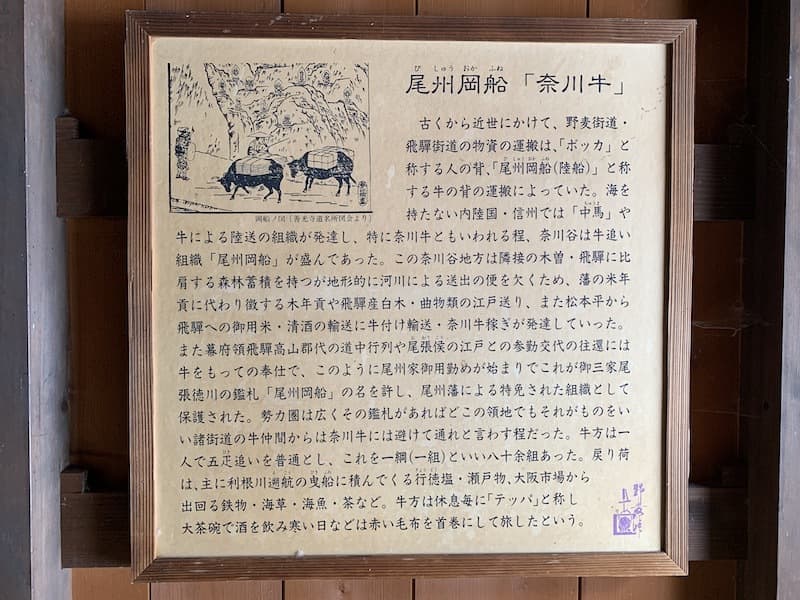 尾州岡船「奈川牛」
古くから近世にかけて、野麦街道・
飛騨街道の物資の運搬は、「ボッカ」と
称する人の背、「尾州岡船(陸船)」と称
する牛の背の運搬によっていた。海を
持たない内陸国・信州では「中馬」や
岡船ノ図(善光寺道名所図会より)
牛による陸送の組織が発達し、特に奈川牛ともいわれる程、奈川谷は牛追い
組織「尾州岡船」が盛んであった。この奈川谷地方は隣接の木曽・飛騨に比
肩する森林蓄積を持つが地形的に河川による送出の便を欠くため、藩の米年
貢に代わり徴する木年貢や飛騨産白木・曲物類の江戸送り、また松本平から
飛騨への御用米・清酒の輸送に牛付け輸送・奈川牛稼ぎが発達していった。
また幕府領飛騨高山郡代の道中行列や尾張侯の江戸との参勤交代の往還には
牛をもっての奉仕で、このように尾州家御用勤めが始まりでこれが御三家尾
張徳川の鑑札「尾州岡船」の名を許し、尾州藩による特免された組織として
保護された。勢力圏は広くその鑑札があればどこの領地でもそれがものをい
い諸街道の牛仲間からは奈川牛には避けて通れと言わす程だった。牛方は一
人で五疋追いを普通とし、これを一綱(一組)といい八十余組あった。戻り荷
は、主に利根川遡航の曳船に積んでくる行徳塩・瀬戸物、大阪市場から
出回る鉄物・海草・海魚・茶など。牛方は休息毎に「テッパ」と称し
大茶碗で酒を飲み寒い日などは赤い毛布を首巻にして旅したという。